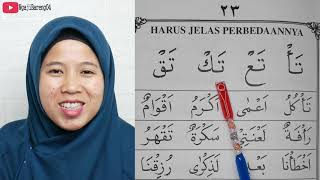 NgajiBareng04
٢٣
HARUS JELAS PERBEDAANNYA
تَأْ تَعْ تَكْ تَقْ
تَأْكُلُ اَعْمٰى اَكْرَمُ اَقْوَامٌ
رَأْفَةٌ لَعْنَتِيْ سَكْرَةٌ تَقْهَرْ
اَخْطَأْنَا بَعْدَ لَذِكْرٰى رُزِقْنَا